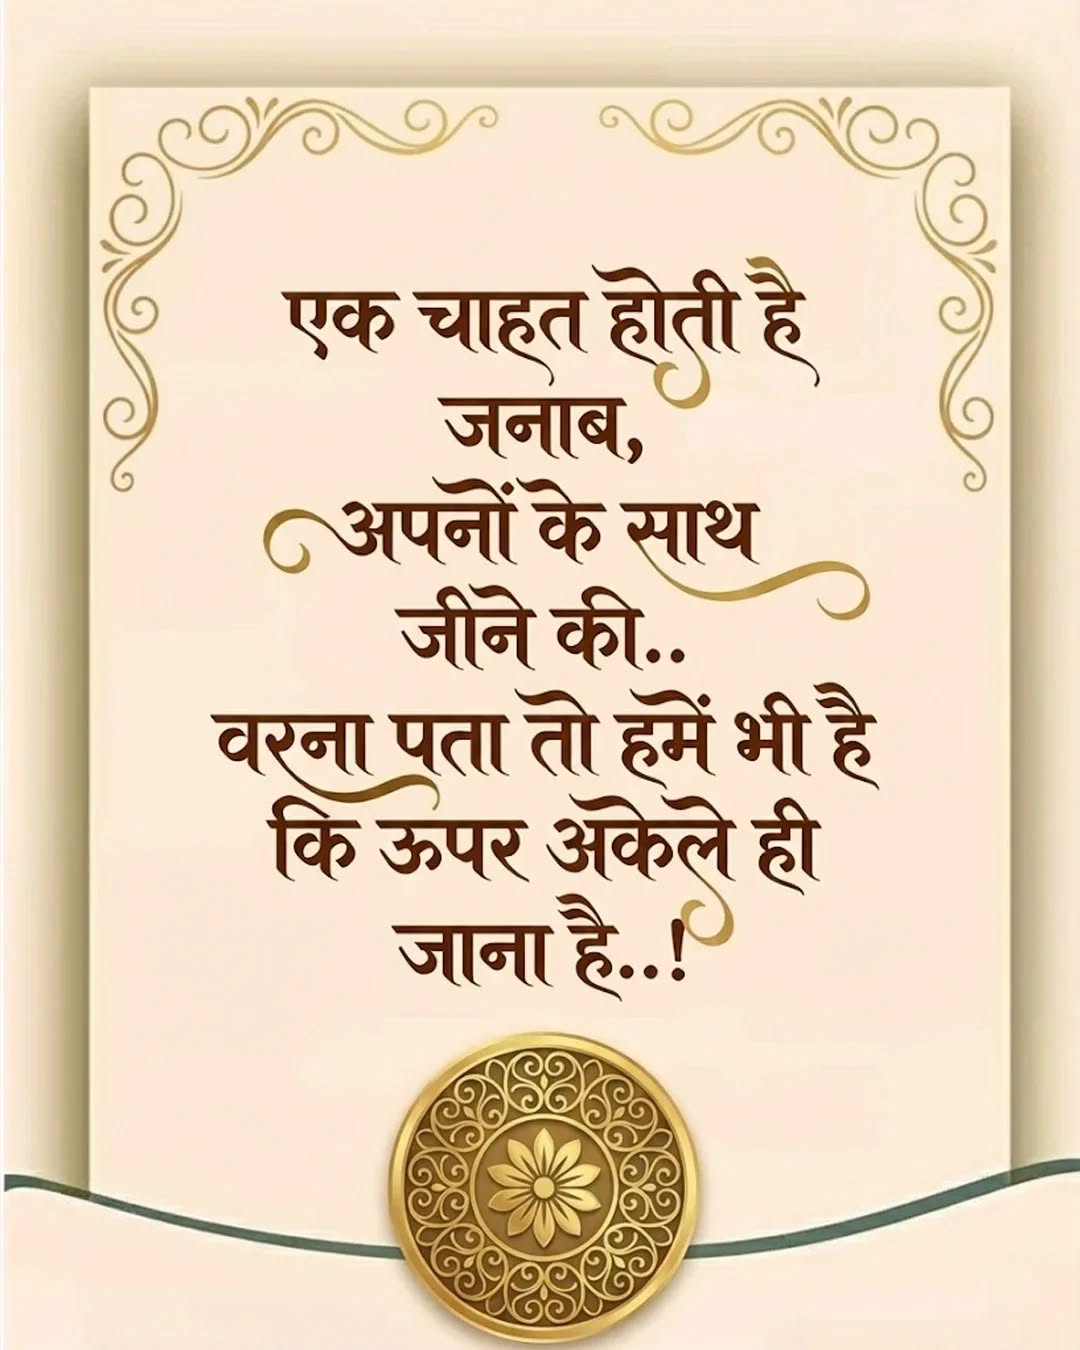 एक चाहत होती है
जनाब,
अपनों के साथ
जीने की..
वरना पता तो हमें भी है
कि ऊपर अकेले ही
जाना है..!